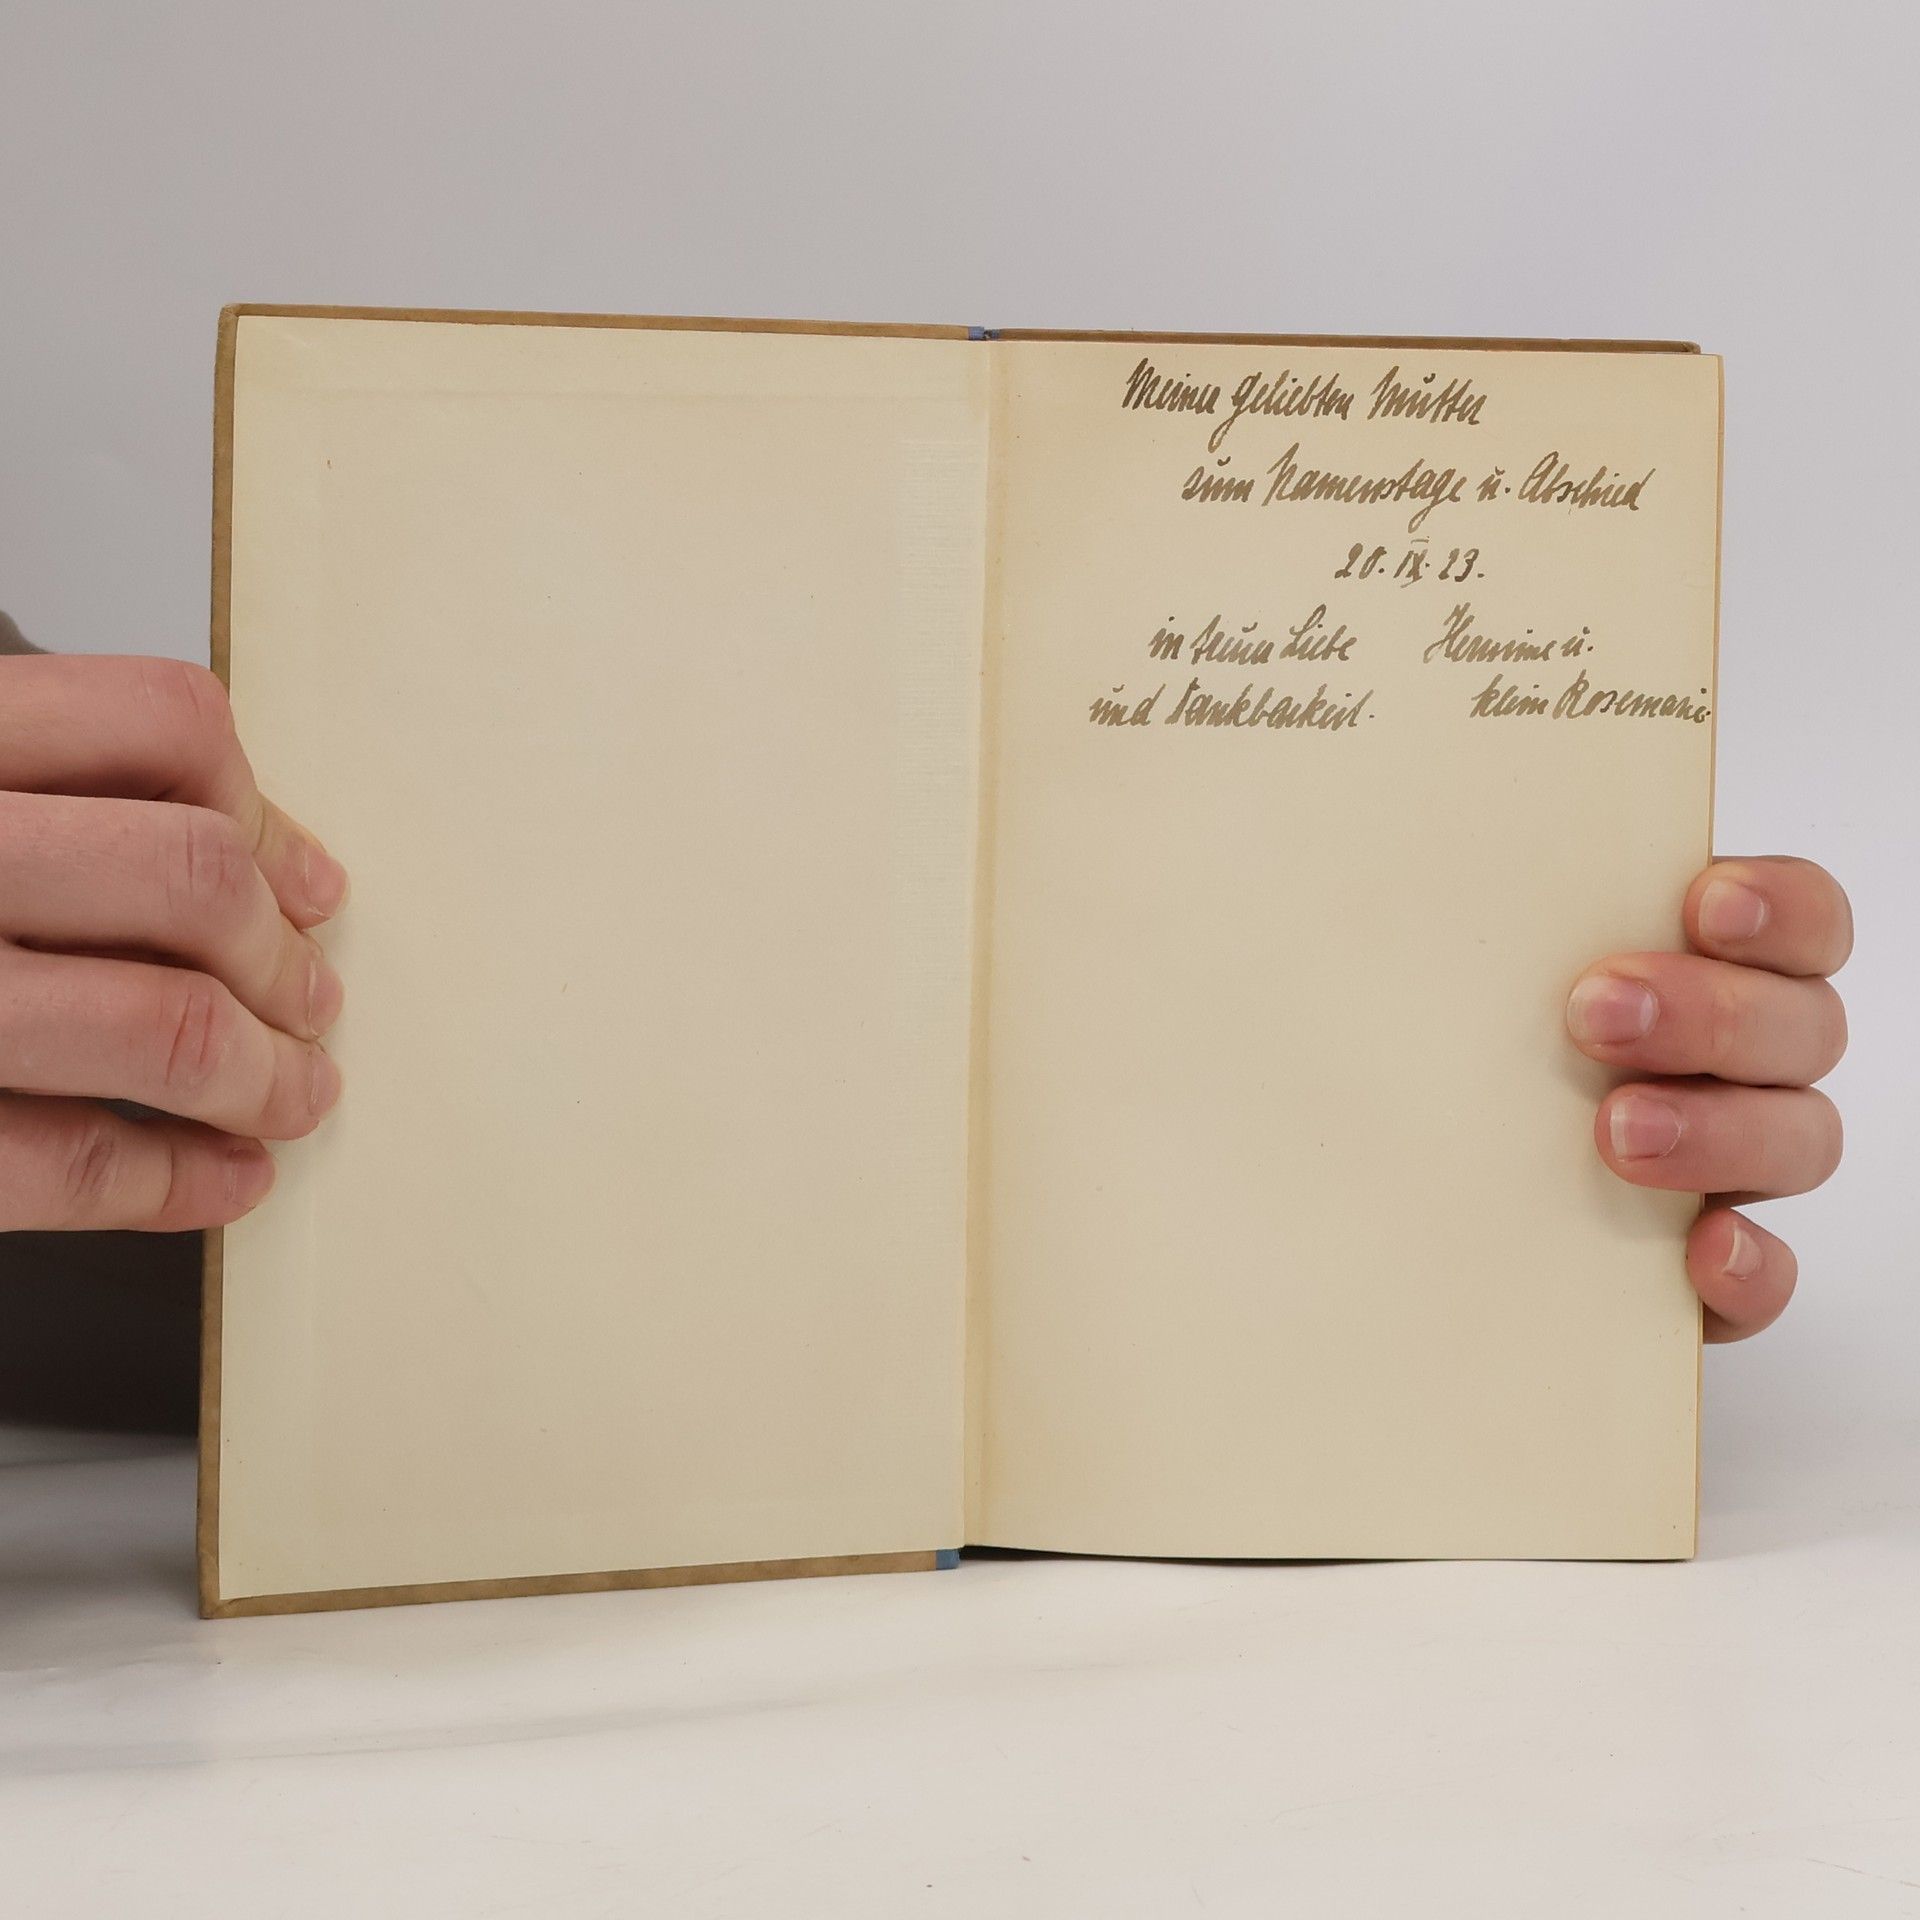 Meiner geliebten Mutter
zum Namenstage u. Abschied
20. IX. 23.
in treuer Liebe Hermine u.
und Dankbarkeit. klein Rosemarie.